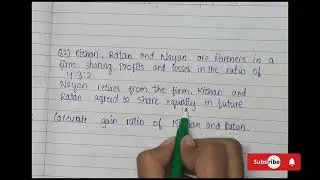 Q2) Kishan, Ratan and Nayan are Partners in a
firm sharing Profits and losses in the ratio of
4:3:2.
Nayan retires from the firm. Kishan and
Ratan agreed to share equally in future
Calculate gain ratio of Kishan and Ratan.
Subscribe